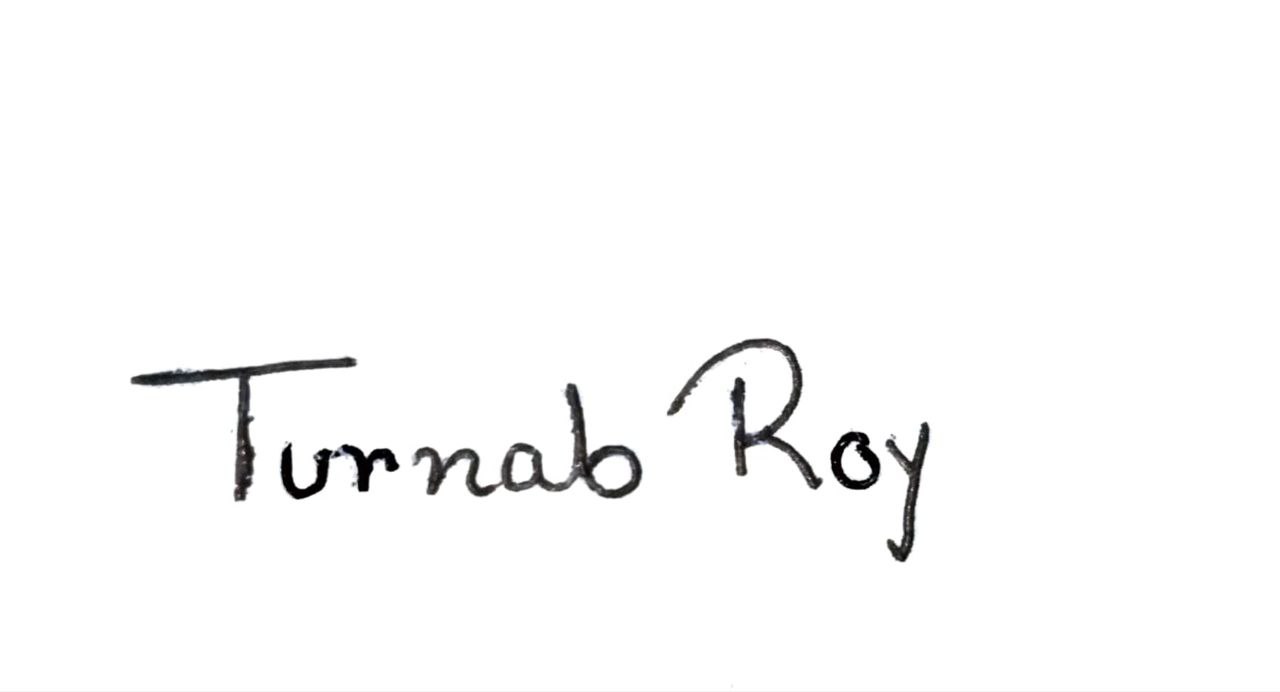 Turnab Roy